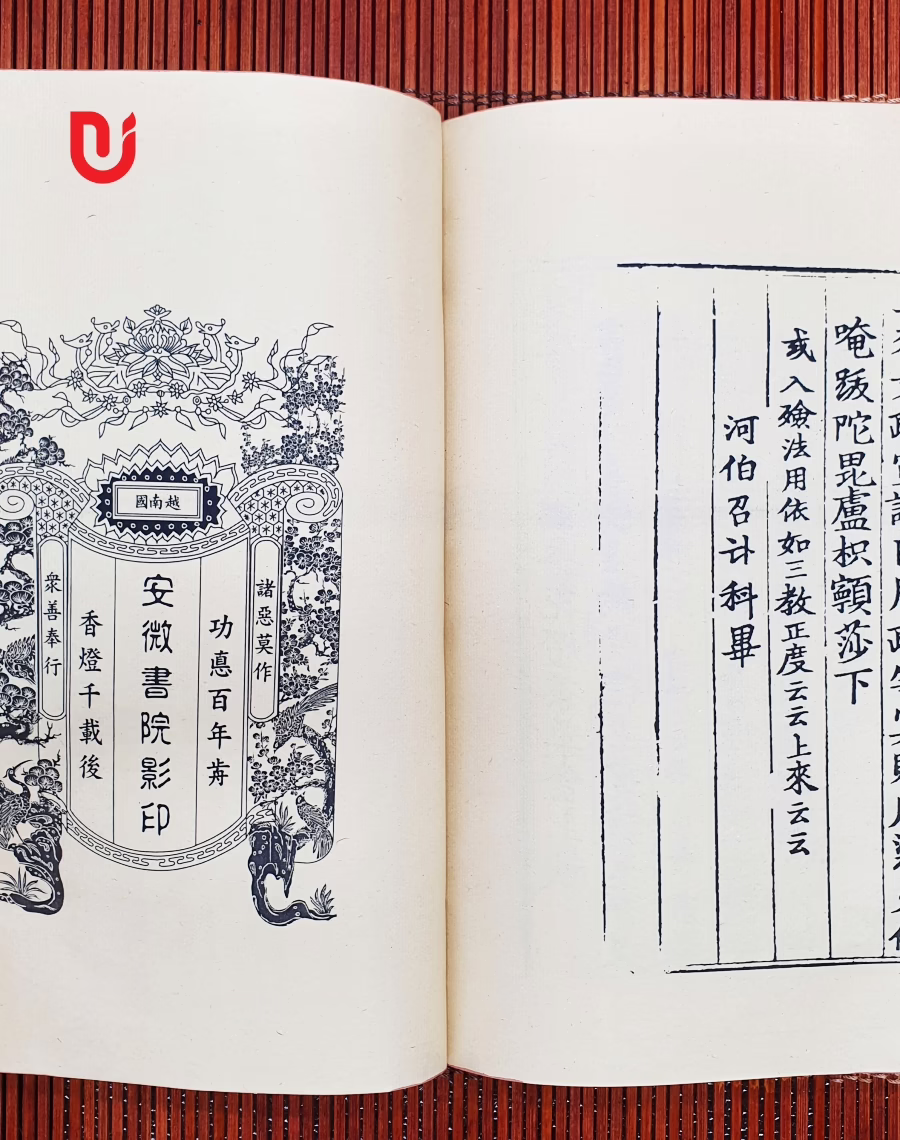 唵䟦陀毘盧枳莎下
或入殮法用依如三教正度云云上來云云
河伯召计科畢
越南國
諸惡莫作
功悳百年歬
安微書院影印
香燈千載後
衆善奉行